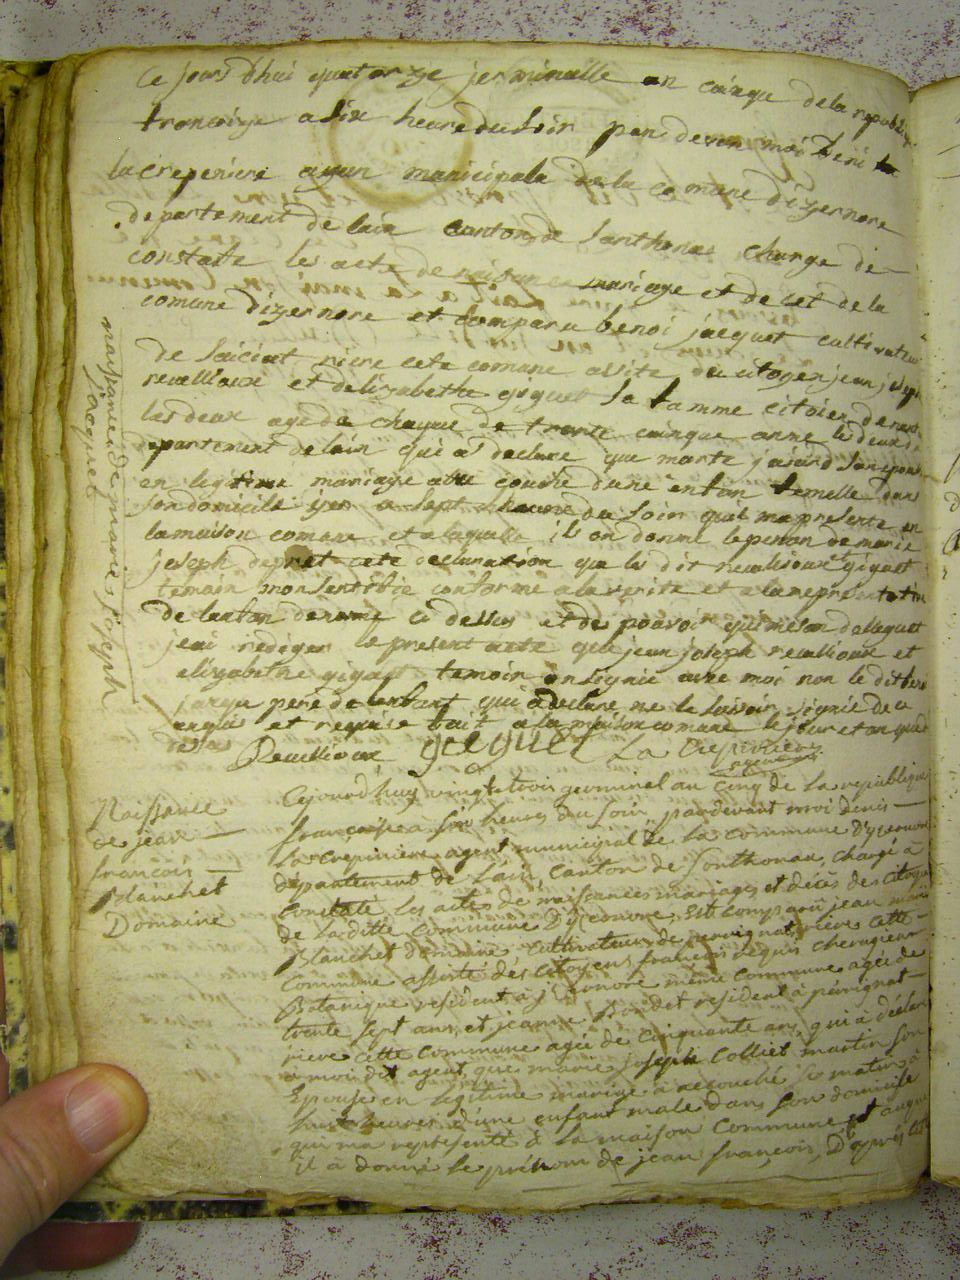 Ce jourd'hui quatorze jerminalle an cainque de la republique
francaize a six heure du soir par devan moi deni la
la crepeniere agan manicipale de la comune dizernore
departement de lain canton de Santhonas charge de
constate les acte de naisance mariage et de cet de la
comune dizernore et comparu benoi jacquet cultivateur
de riere cete comune asisté du citoyen jean joseph
revellioux et delizabethe giguet sa famme citoien de
les deux age de chaque de trante cainque anne le deux
departement de lain qui a declare que marte jaiard son epouse
en legitime mariage a été couche dune enfan femelle dans
son domicile ier a sept heure du soir quil ma presente en
la maison comune et a laquelle ils on donné le penon de marie
joseph dapret cete declaration que les dit revellioux et giguet
temain mon sertifié conforme a la verite et a la representation
de lanfan denomé ci dessus et des pouvoir qui me son delequet
jeai rediger le present acte que jean joseph revellioux et
elizabethe giguet temoin on signié avec moi non le dit beni
jacque pere de lenfant qui a declare ne le savoir signié de ce
anquis et requise fait a la maison comune le jour et an que
desu
Revellioux giguet La Crepiniere
agent
naisance de marie joseph
jacquet
Naissance
de jean
françois
Blanchet
Domaine
Cejourd'huy vingt trois germinal an cinq de la republique
française a six heures du soir, pardevant moi denis
La Crepiniere agent municipal de la Commune Dyzernore
département de Lain, Canton de Sonthonax, chargé à
Constaté les actes de naissances mariages et décès des Citoyens
de laditte Commune Dyzernore, est comparu jean marie
Blanchet domaine Cultivateur de perignat, riere cette
Commune assisté des Citoyens françois Chirugien
Botanique résident à même Commune agée de
trente sept ans, et jeanne Bondet résident à pérignat
riere cette Commune agée de Cinquante ans, qui a déclaré
à moi dit agent, que marie joseph Colliet martin son
Epouse en legitime mariage à accouché ce matin à
huit heures d'une enfant male dans son domicile
qui ma représenté à la maison Commune et auquel
il a donné le prénom de jean françois, D'après cette